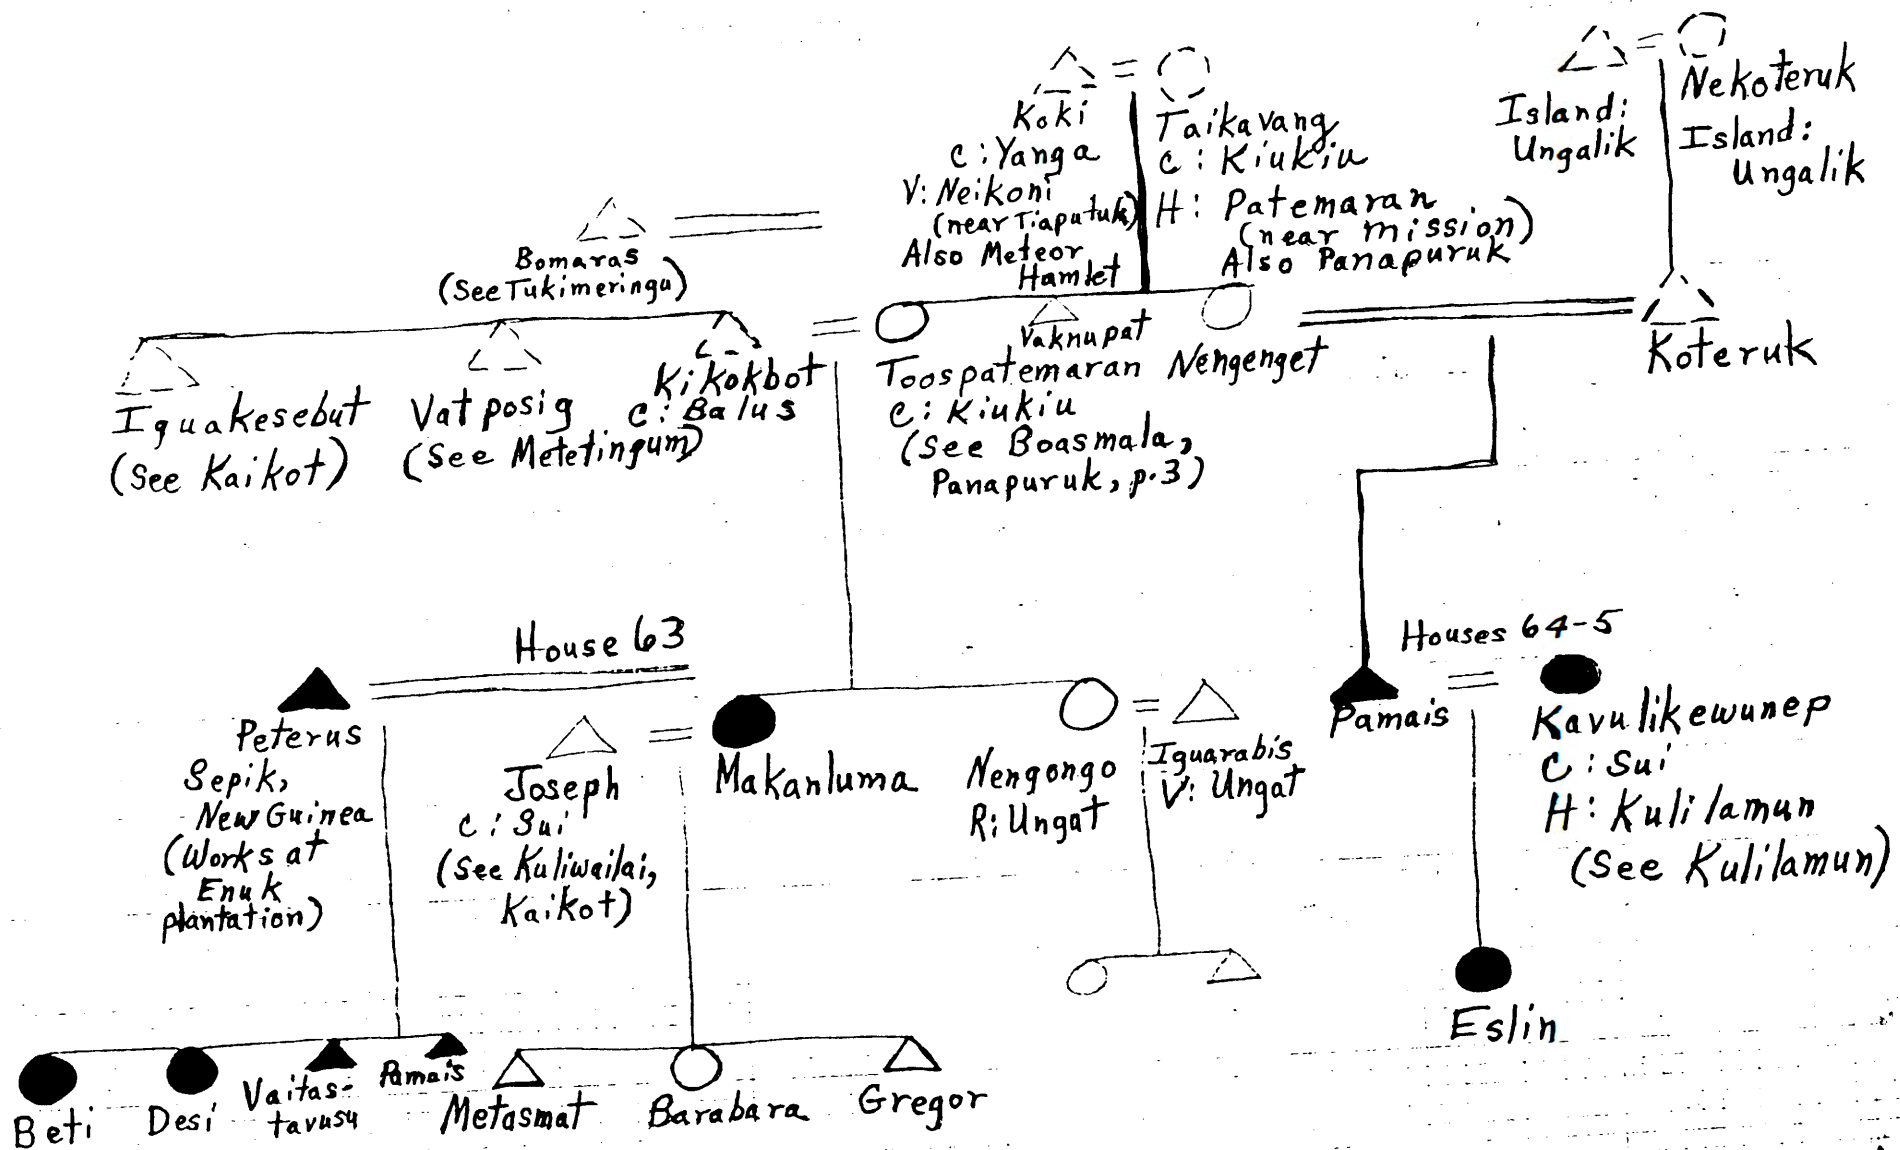 Koki
C: Yanga
V: Neikoni
(near Tiaputuk)
Also Meteor
Hamlet
Taikavang
C: Kiukiu
H: Patemaran
(near mission)
Also Panapuruk
Island:
Ungalik
Nekoteruk
Island:
Ungalik
Bomaras
(See Tukimeringu)
Iguakesebut
(See Kaikot)
Vatposig
(See Metetingum)
Kikokbot
C: Balus
Toospatemaran
C: Kiukiu
(See Boasmala,
Panapuruk, p.3)
Vaknupat
Nengenget
Koteruk
House 63
Houses 64-5
Peterus
Sepik,
New Guinea
(Works at
Enuk
plantation)
Joseph
C: Sui
(See Kuliwailai,
Kaikot)
Makanluma
Nengongo
R: Ungat
Iguarabis
V: Ungat
Pamais
Kavulikewunep
C: Sui
H: Kulilamun
(See Kulilamun)
Beti
Desi
Vaitas-
tavusu
Pamais
Metasmat
Barabara
Gregor
Eslin